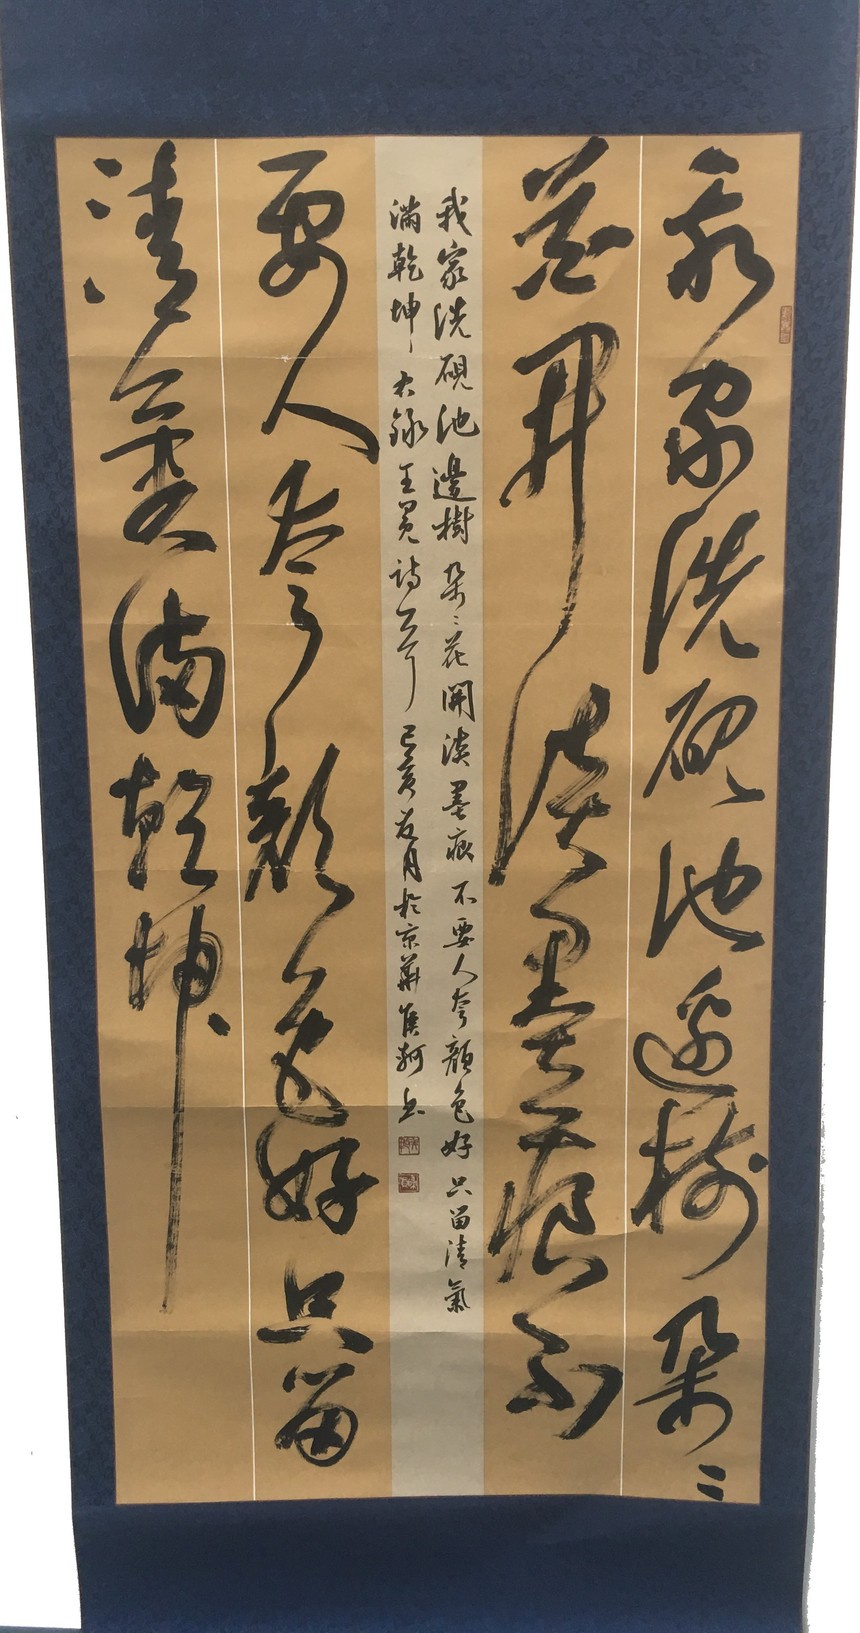 我家洗硯池邊樹朵〻
花開淡墨痕不
我家洗硯池邊樹朵〻花開淡墨痕不要人夸顏色好只留清氣
滿乾坤 右錄王冕詩一首 己亥 月於京華 軻書
要人夸顏色好只留
清氣滿乾坤